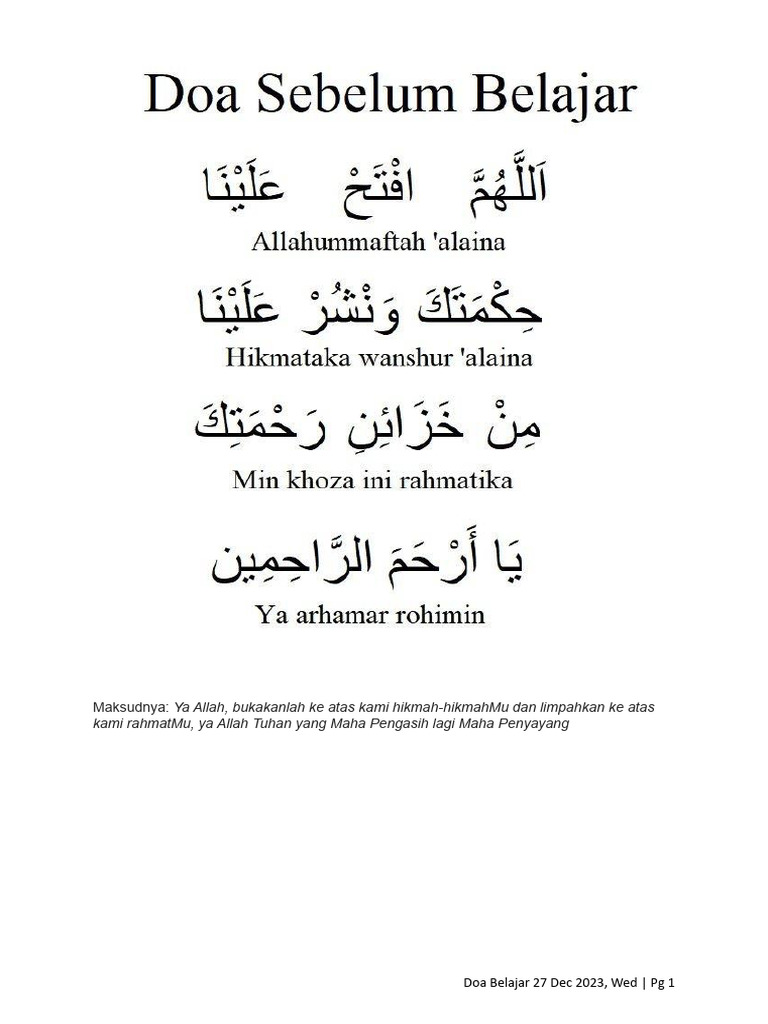 Doa Sebelum Belajar
اَللَّهُمَّ افْتَحْ عَلَيْنَا
Allahummaftah 'alaina
حِكْمَتَكَ وَنْشُرْ عَلَيْنَا
Hikmataka wanshur 'alaina
مِنْ خَزَائِنِ رَحْمَتِكَ
Min khoza ini rahmatika
يَا أَرْحَمَ الرَّاحِمِين
Ya arhamar rohimin
Maksudnya: Ya Allah, bukakanlah ke atas kami hikmah-hikmahMu dan limpahkan ke atas
kami rahmatMu, ya Allah Tuhan yang Maha Pengasih lagi Maha Penyayang
Doa Belajar 27 Dec 2023, Wed | Pg 1